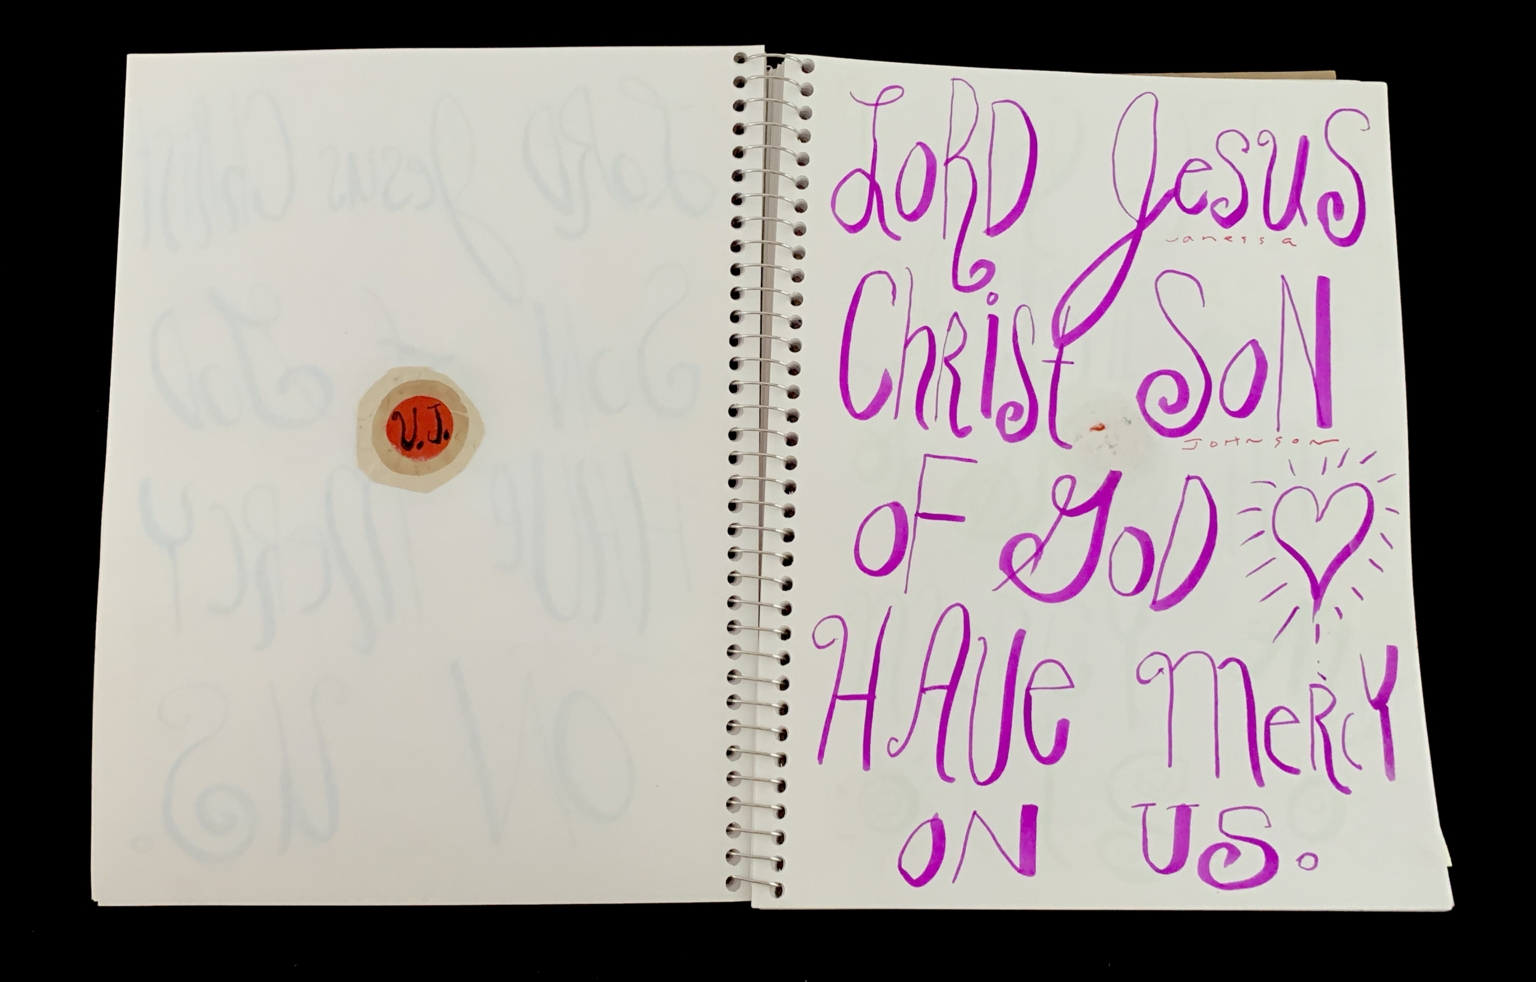 V.J.
LORD JesUS
vanessa
ChRiSt SoN
JOHNSON
oF GoD
HAVe MeRcY
ON US.